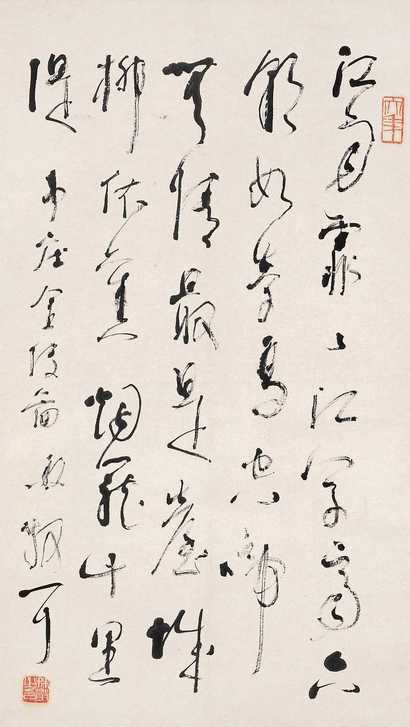 江雨霏〻江草齊六
朝如夢鳥空啼
無情最是臺城
柳依舊煙籠十里
堤 韋莊金陵圖 散耳